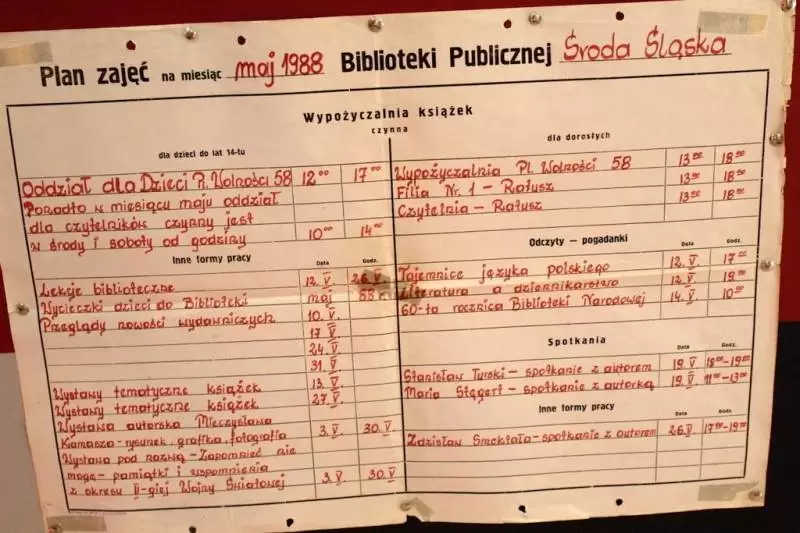 Plan zajęć na miesiąc maj 1988 Biblioteki Publicznej Środa Śląska
Wypożyczalnia książek
czynna
dla dzieci do lat 14-tu
Oddział dla Dzieci Pl. Wolności 58 12⁰⁰ 17⁰⁰
Ponadto w miesiącu maju oddział
dla czytelników czynny jest
w środy i soboty od godziny 10⁰⁰ 14⁰⁰
Inne formy pracy Data Godz.
Lekcje biblioteczne 12.V 26.V
Wycieczki dzieci do Biblioteki maj 88
Przeglądy nowości wydawniczych 10.V.
17.V
24.V
31.V
Wystawy tematyczne książek 13.V
Wystawy tematyczne książek 27.V
Wystawa autorska Mieczysława
Kamasza - rysunek, grafika, fotografia 3.V. 30.V.
Wystawa pod nazwą - Zapomnieć nie
mogę - pamiątki i wspomnienia
z okresu II-giej Wojny Światowej 3.V. 30.V
dla dorosłych
Wypożyczalnia Pl. Wolności 58 13⁰⁰ 18⁰⁰
Filia Nr. 1 - Ratusz 13⁰⁰ 18⁰⁰
Czytelnia - Ratusz 13⁰⁰ 18⁰⁰
Odczyty — pogadanki Data Godz.
Tajemnice języka polskiego 12.V 17⁰⁰
Literatura a dziennikarstwo 12.V 19⁰⁰
60-ta rocznica Biblioteki Narodowej 14.V 10⁰⁰
Spotkania Data Godz.
Stanisław Turski - spotkanie z autorem 19.V 18⁰⁰-19⁰⁰
Maria - spotkanie z autorką 19.V 11⁰⁰-13⁰⁰
Inne formy pracy Data Godz.
Zdzisław Smektała - spotkanie z autorem 26.V 17⁰⁰-19⁰⁰